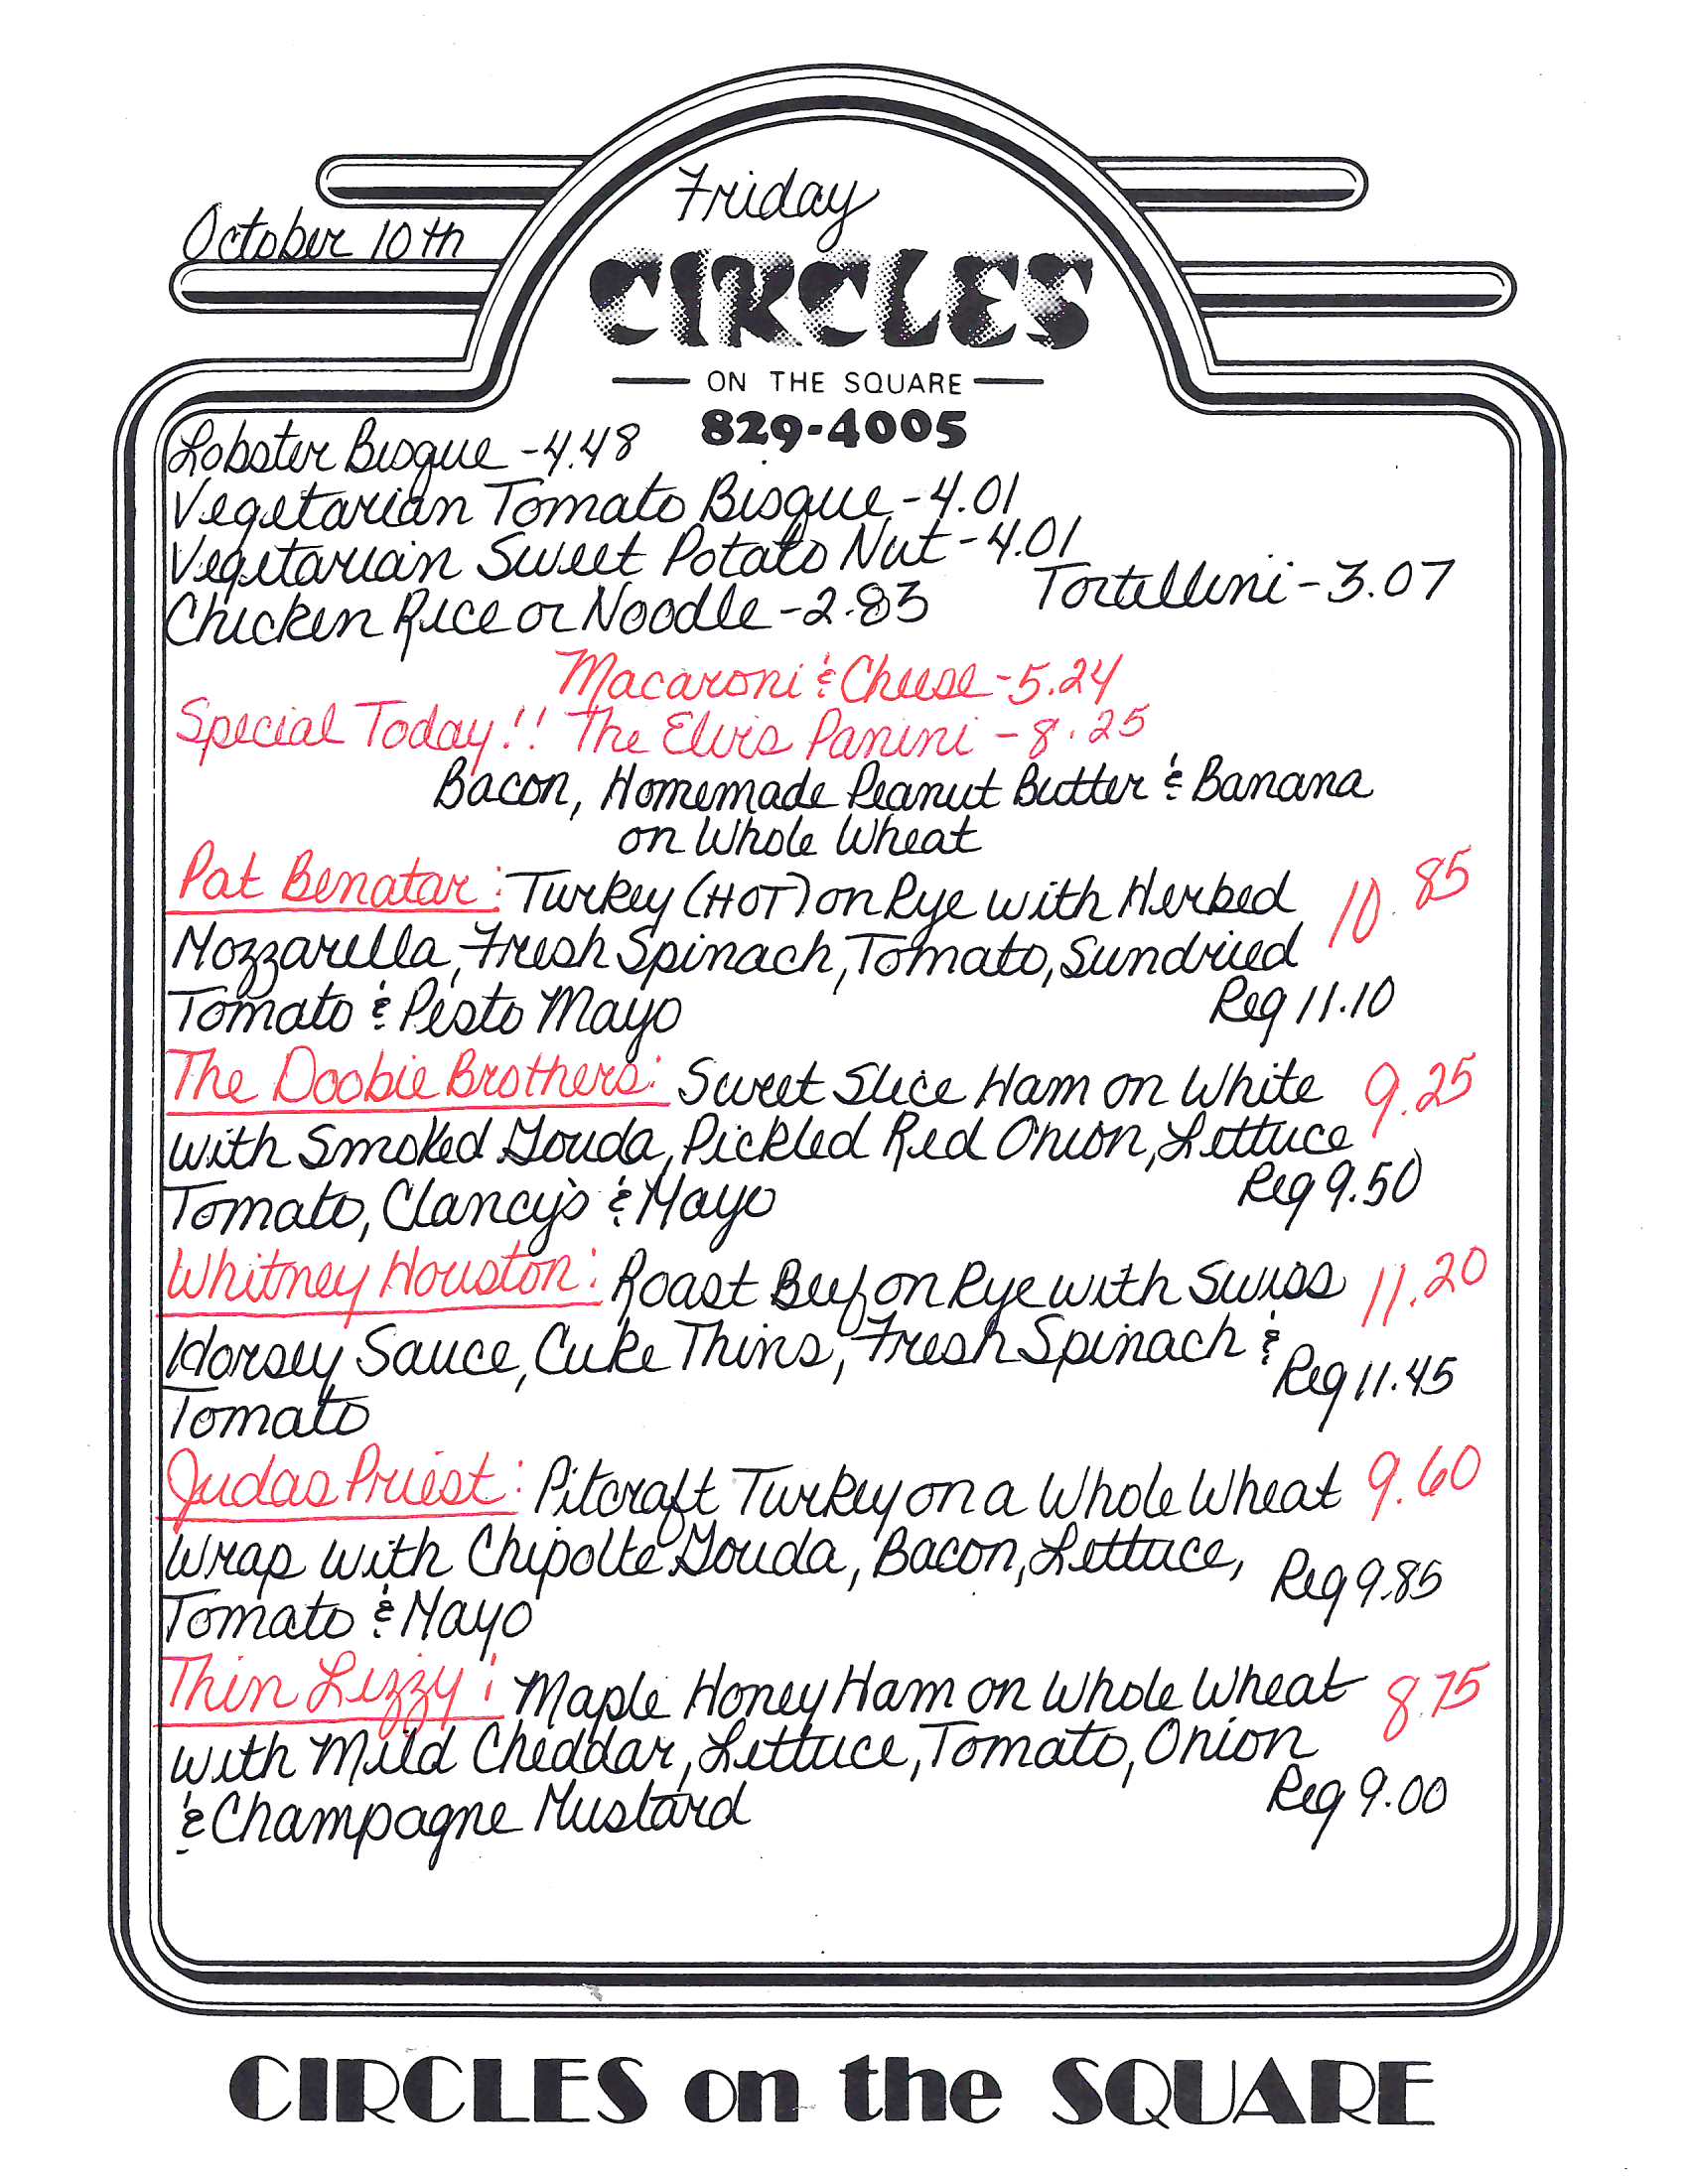 Friday
October 10th
CIRCLES
ON THE SQUARE
829-4005
Lobster Bisque - 4.48
Vegetarian Tomato Bisque - 4.01
Vegetarian Sweet Potato Nut - 4.01
Chicken Rice or Noodle - 2.83 Tortellini - 3.07
Macaroni & Cheese - 5.24
Special Today!! The Elvis Panini - 8.25
Bacon, Homemade Peanut Butter & Banana
on Whole Wheat
Pat Benatar: Turkey (HOT) on Rye with Herbed 10.85
Mozzarella, Fresh Spinach, Tomato, Sundried
Tomato & Pesto Mayo Reg 11.10
The Doobie Brothers: Sweet Slice Ham on White 9.25
with Smoked Gouda, Pickled Red Onion, Lettuce
Tomato, Clancy's & Mayo Reg 9.50
Whitney Houston: Roast Beef on Rye with Swiss 11.20
Horsey Sauce, Cuke Thins, Fresh Spinach & Reg 11.45
Tomato
Judas Priest: Pitcraft Turkey on a Whole Wheat 9.60
Wrap with Chipolte Gouda, Bacon, Lettuce, Reg 9.85
Tomato & Mayo
Thin Lizzy: Maple Honey Ham on Whole Wheat 8.75
with Mild Cheddar, Lettuce, Tomato, Onion
& Champagne Mustard Reg 9.00
CIRCLES on the SQUARE